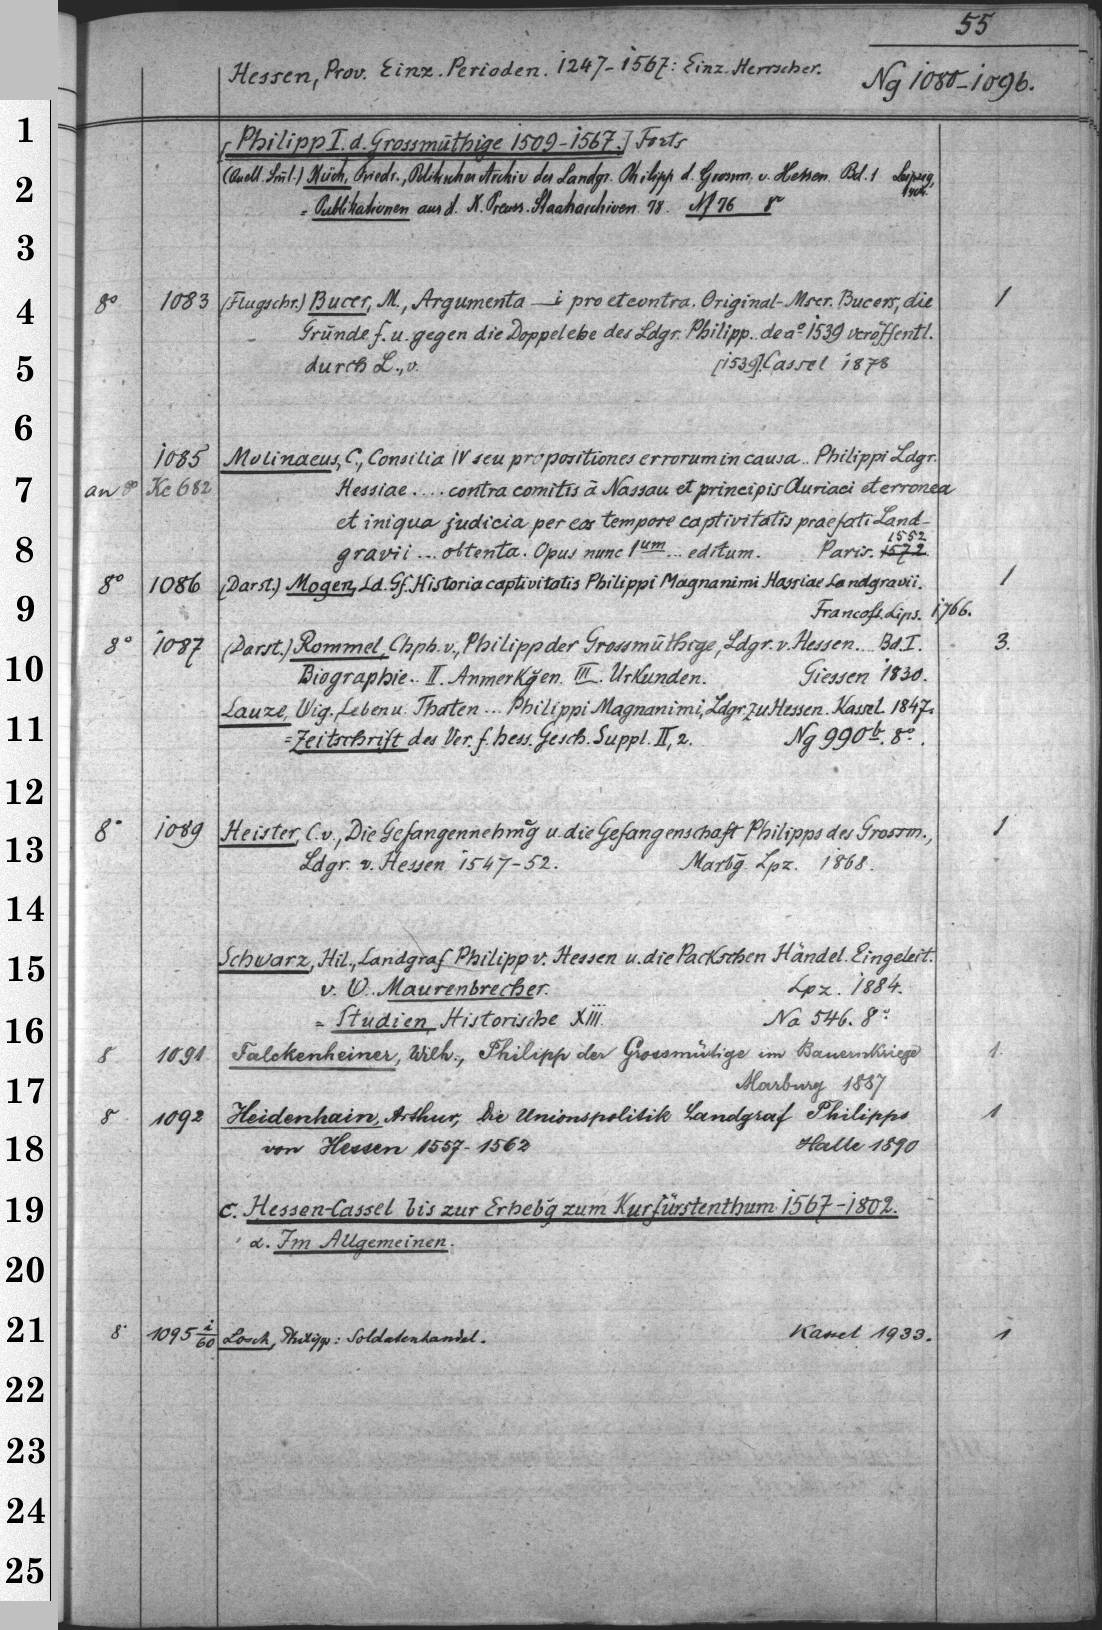 55
Hessen, Prov. Einz. Perioden. 1247-1567: Einz. Herrscher.
Ng 1080-1096.
[Philipp I. d. Grossmüthige 1509-1567.] Forts
(Quell. Sml.) Küch, Friedr., Politisches Archiv des Landgr. Philipp d. Grossm. v. Hessen. Bd. 1 Leipzig,
= Publikationen aus d. K. Preuss. Staatsarchiven 78. Nf 76 8°
8° 1083 (Flugschr.) Bucer, M., Argumenta — i pro et contra. Original-Mscr. Bucers, die 1
Gründe f. u. gegen die Doppelehe des Ldgr. Philipp. de a° 1539 veröffentl.
durch L., v. [1539]. Cassel 1878
1085 Molinaeus, C., Consilia IV seu propositiones errorum in causa .. Philippi Ldgr.
an 8° Kc 682 Hessiae .... contra comitis à Nassau et principis Auriaci et erronea
et iniqua judicia per eos tempore captivitatis praefati Land-
gravii ... obtenta. Opus nunc 1um ... editum. Paris. 1572 1552
8° 1086 (Darst.) Mogen, Ld. Gf. Historia captivitatis Philippi Magnanimi Hassiae Landgravii. 1
Francof. Lips. 1766.
8° 1087 (Darst.) Rommel, Chph. v., Philipp der Grossmüthige, Ldgr. v. Hessen... Bd. I. 3.
Biographie.. II. Anmerkg̃en. III. Urkunden. Giessen 1830.
Lauze, Wig., Leben u. Thaten ... Philippi Magnanimi, Ldgr. zu Hessen. Kassel 1847.
= Zeitschrift des Ver. f. hess. Gesch. Suppl. II, 2. Ng 990b. 8°.
8° 1089 Heister, C. v., Die Gefangennehmg̃ u. die Gefangenschaft Philipps des Grossm., 1
Ldgr. v. Hessen 1547-52. Marbg̃. Lpz. 1868.
Schwarz, Hil., Landgraf Philipp v. Hessen u. die Packschen Händel. Eingeleit.
v. W. Maurenbrecher. Lpz. 1884.
= Studien, Historische XIII. Na 546. 8°
8 1091 Falckenheiner, Wilh., Philipp der Grossmütige im Bauernkriege 1.
Marburg 1887
8 1092 Heidenhain, Arthur, Die Unionspolitik Landgraf Philipps 1
von Hessen 1557-1562 Halle 1890
c. Hessen-Cassel bis zur Erhebg̃ zum Kurfürstenthum 1567-1802.
α. Im Allgemeinen.
8 1095 i/60 Losch, Philipp: Soldatenhandel. Kassel 1933. 1
1
2
3
4
5
6
7
8
9
10
11
12
13
14
15
16
17
18
19
20
21
22
23
24
25